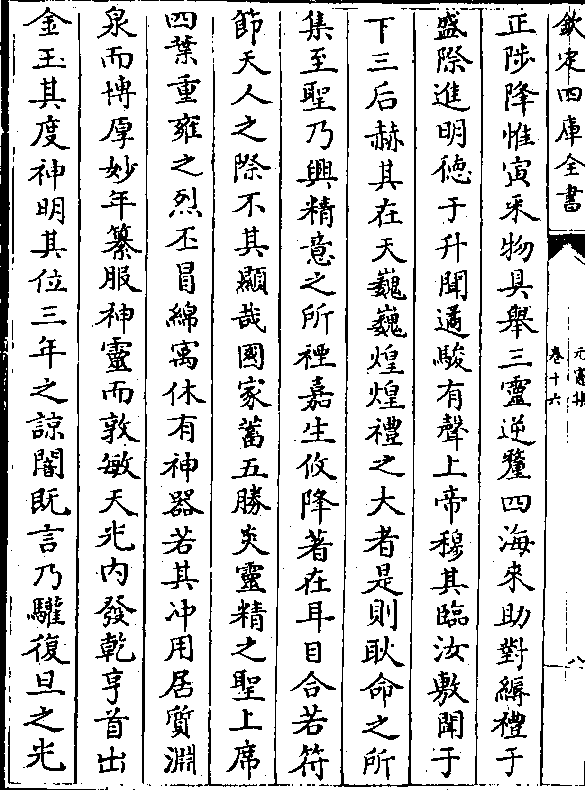 欽定四庫全書
元憲集
卷十六
八
正陟降惟寅采物具舉三靈逆釐四海來助對縟禮于
盛際進明德于升聞遹駿有聲上帝穆其臨汝敷聞于
下三后赫其在天巍巍煌煌禮之大者是則耿命之所
集至聖乃興精意之所禋嘉生攸降著在耳目合若符
節天人之際不其顯哉國家蓄五勝炎靈精之聖上席
四葉重雍之烈丕冒綿寓休有神器若其冲用居質淵
泉而博厚妙年纂服神靈而敦敏天光内發乾亨首出
金玉其度神明其位三年之諒闇既言乃驩復旦之光